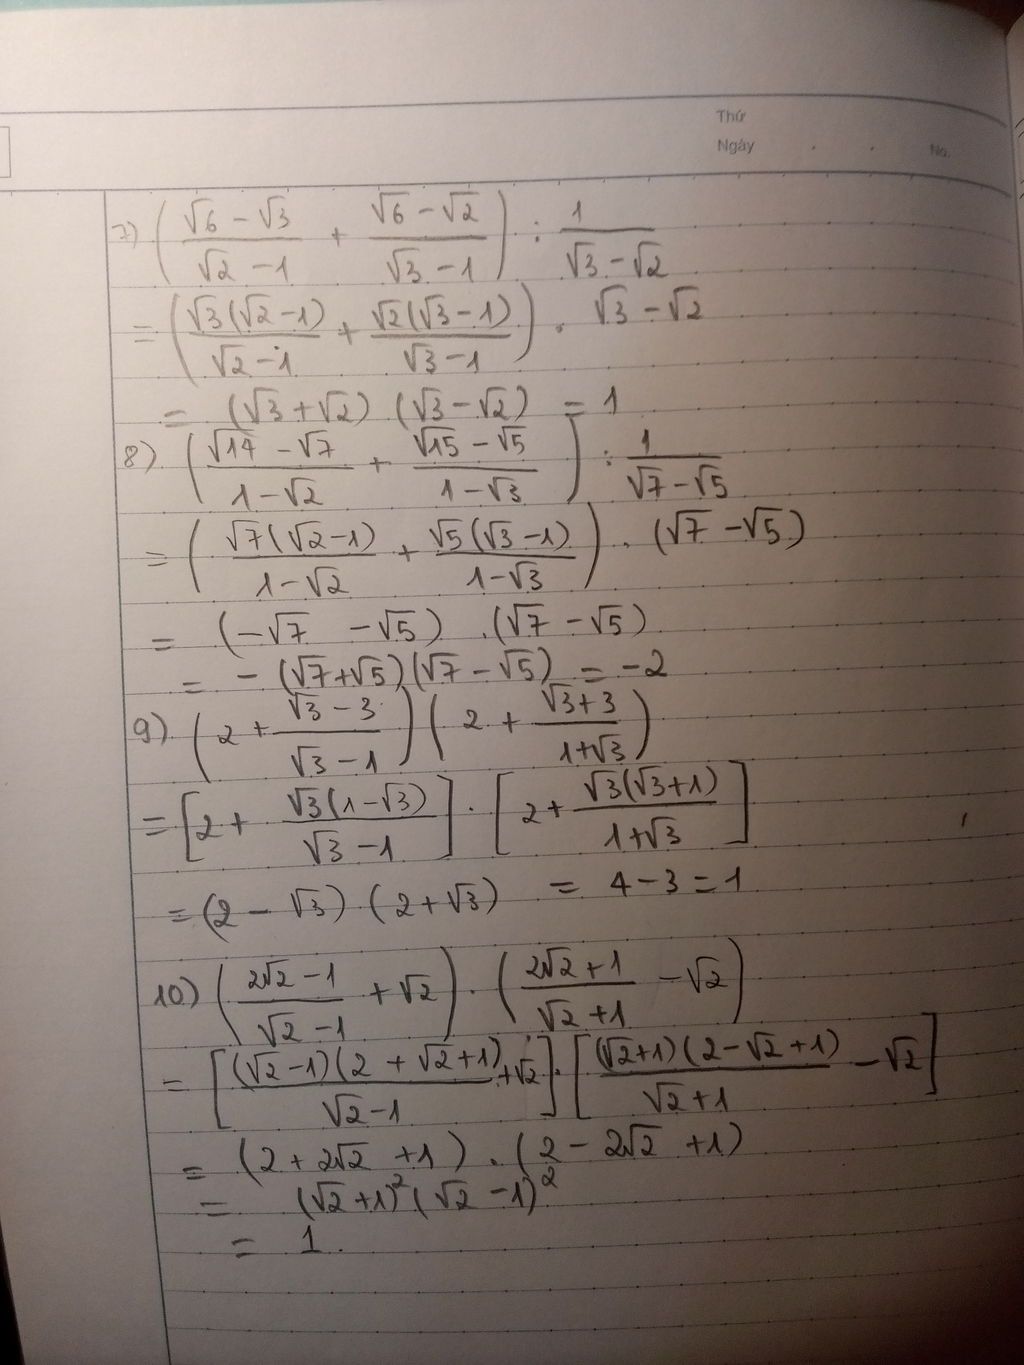 Thứ
Ngày . . No.
7) ( (√6 - √3)/(√2 - 1) + (√6 - √2)/(√3 - 1) ) : 1/(√3 - √2)
= ( √3(√2 - 1)/(√2 - 1) + √2(√3 - 1)/(√3 - 1) ) . √3 - √2
= (√3 + √2) (√3 - √2) = 1
8) ( (√14 - √7)/(1 - √2) + (√15 - √5)/(1 - √3) ) : 1/(√7 - √5)
= ( √7(√2 - 1)/(1 - √2) + √5(√3 - 1)/(1 - √3) ) . (√7 - √5)
= (-√7 - √5) . (√7 - √5)
= - (√7 + √5)(√7 - √5) = -2
9) ( 2 + (√3 - 3)/(√3 - 1) ) ( 2 + (√3 + 3)/(1 + √3) )
= [ 2 + √3(1 - √3)/(√3 - 1) ] . [ 2 + √3(√3 + 1)/(1 + √3) ]
= (2 - √3) (2 + √3) = 4 - 3 = 1
10) ( (2√2 - 1)/(√2 - 1) + √2 ) . ( (2√2 + 1)/(√2 + 1) - √2 )
= [ (√2 - 1)(2 + √2 + 1)/(√2 - 1) + √2 ] . [ (√2 + 1)(2 - √2 + 1)/(√2 + 1) - √2 ]
= (2 + 2√2 + 1) . (2 - 2√2 + 1)
= (√2 + 1)² (√2 - 1)²
= 1.